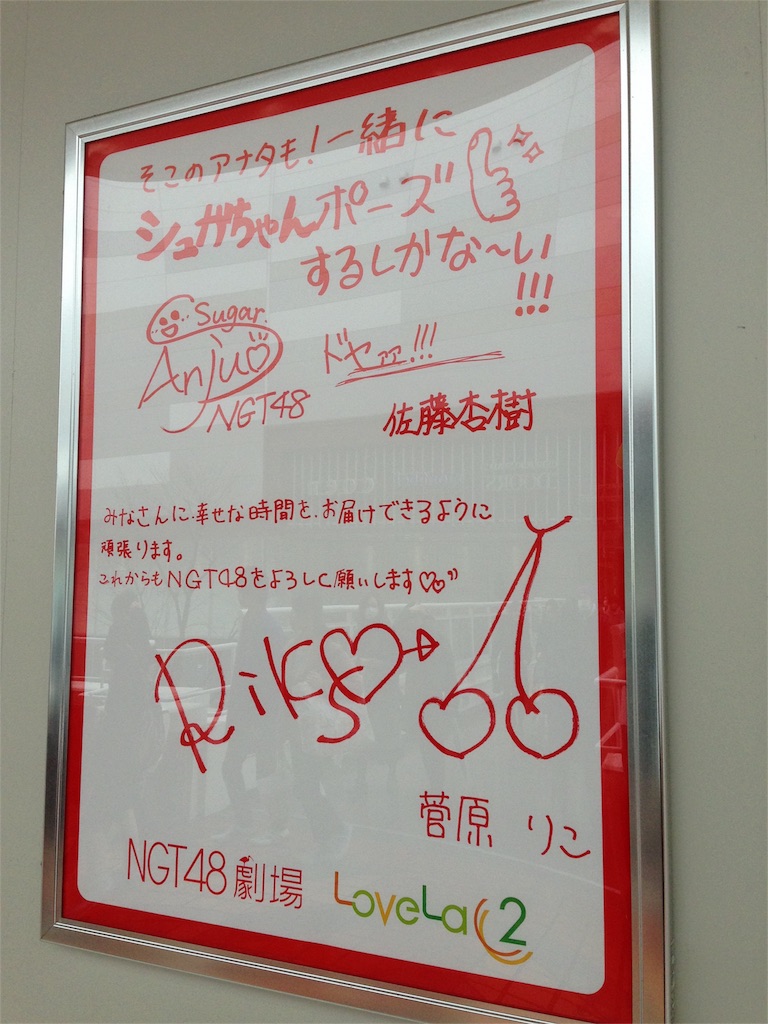 そこのアナタも!一緒に
シュガちゃんポーズ
するしかな〜い
!!!
Sugar.
Anju
NGT48
ドヤァァ!!!
佐藤杏樹
みなさんに、幸せな時間を、お届けできるように
頑張ります。
これからもNGT48をよろしく願いします
Riko
菅原 りこ
NGT48劇場
LoveLa2